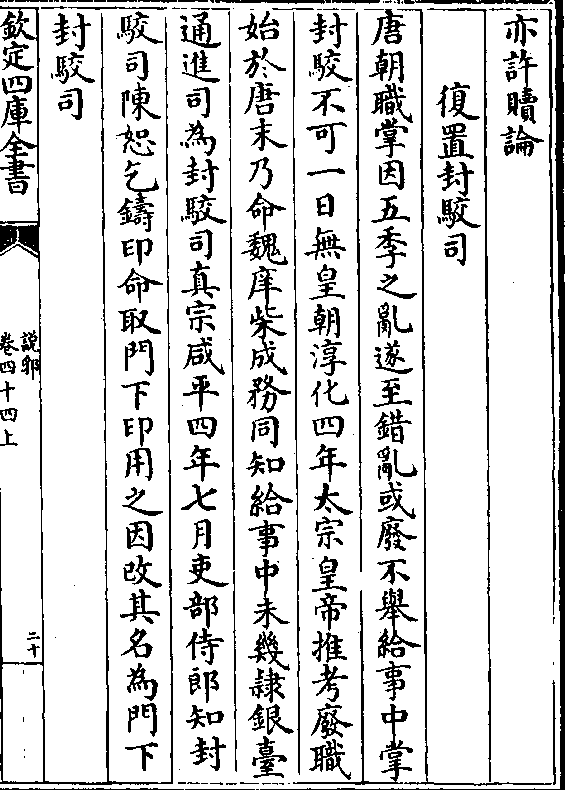 亦許贖論
復置封駮司
唐朝職掌因五季之亂遂至錯亂或廢不舉給事中掌
封駮不可一日無皇朝淳化四年太宗皇帝推考廢職
始於唐末乃命魏庠柴成務同知給事中未幾隷銀臺
通進司為封駮司真宗咸平四年七月吏部侍郎知封
駮司陳恕乞鑄印命取門下印用之因改其名為門下
封駮司
欽定四庫全書
說郛
卷四十四上
二十